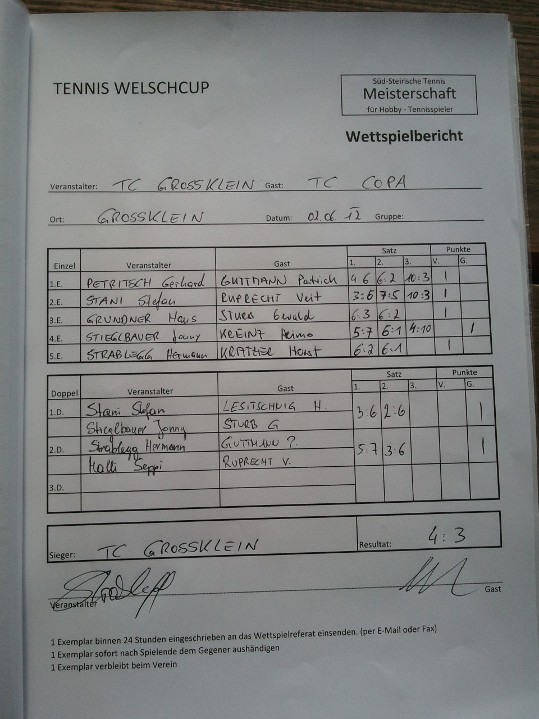 TENNIS WELSCHCUP
Süd-Steirische Tennis
Meisterschaft
für Hobby - Tennisspieler
Wettspielbericht
Veranstalter: TC GROSSKLEIN Gast: TC COPA
Ort: GROSSKLEIN Datum: 02.06.12 Gruppe:
Satz Punkte
Einzel Veranstalter Gast 1. 2. 3. V. G.
1.E. PETRITSCH Gerhard GUTTMANN Patrick 4 6 6:2 10:3 1
2.E. STANI Stefan RUPRECHT Veit 3:6 7:5 10:3 1
3.E. GRUNDNER Hans STURB Ewald 6:3 6:2 1
4.E. STIEGLBAUER Jonny 5:7 6:1 4:10 1
5.E. STRABLEGG Hermann KRATZER Horst 6:2 6:1 1
Satz Punkte
Doppel Veranstalter Gast 1. 2. 3. V. G.
1.D. Stani Stefan H. 3:6 2:6 1
Stieglbauer Jonny STURB G
2.D. Strablegg Hermann GUTTMANN P. 5:7 3:6 1
Seppi RUPRECHT V.
3.D.
Sieger: TC GROSSKLEIN Resultat: 4:3
Veranstalter Gast
1 Exemplar binnen 24 Stunden eingeschrieben an das Wettspielreferat einsenden. (per E-Mail oder Fax)
1 Exemplar sofort nach Spielende dem Gegener aushändigen
1 Exemplar verbleibt beim Verein